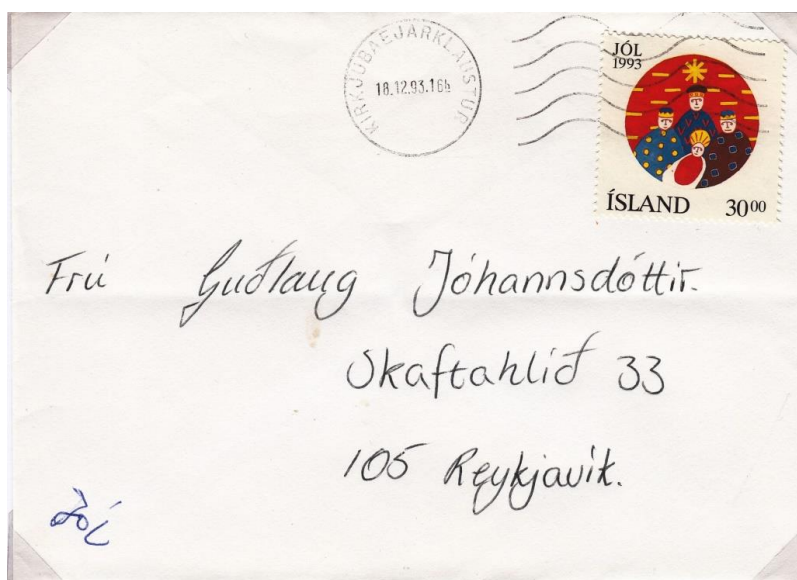 KIRKJUBAEJARKLAUSTUR
18.12.93.16h
JÓL
1993
ÍSLAND 30⁰⁰
Frú Guðlaug Jóhannsdóttir.
Skaftahlíð 33
105 Reykjavík.